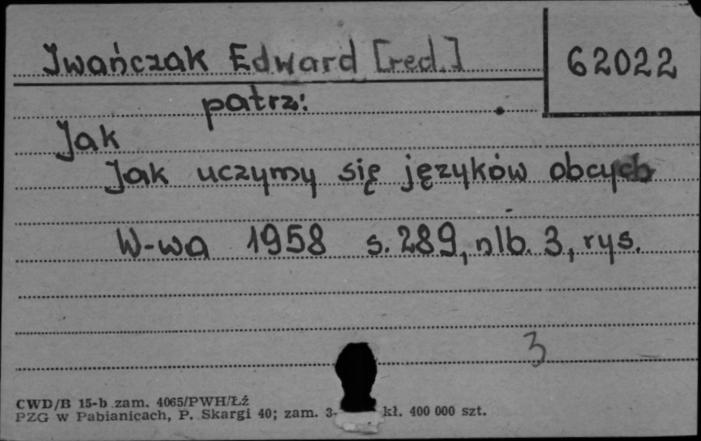 Iwańczak Edward [red.]
62022
patrz:
Jak
Jak uczymy się języków obcych
W-wa 1958 s. 289, nlb. 3, rys.
3
CWD/B 15-b zam. 4065/PWH/Łź
PZG w Pabianicach, P. Skargi 40; zam. 3- kł. 400 000 szt.